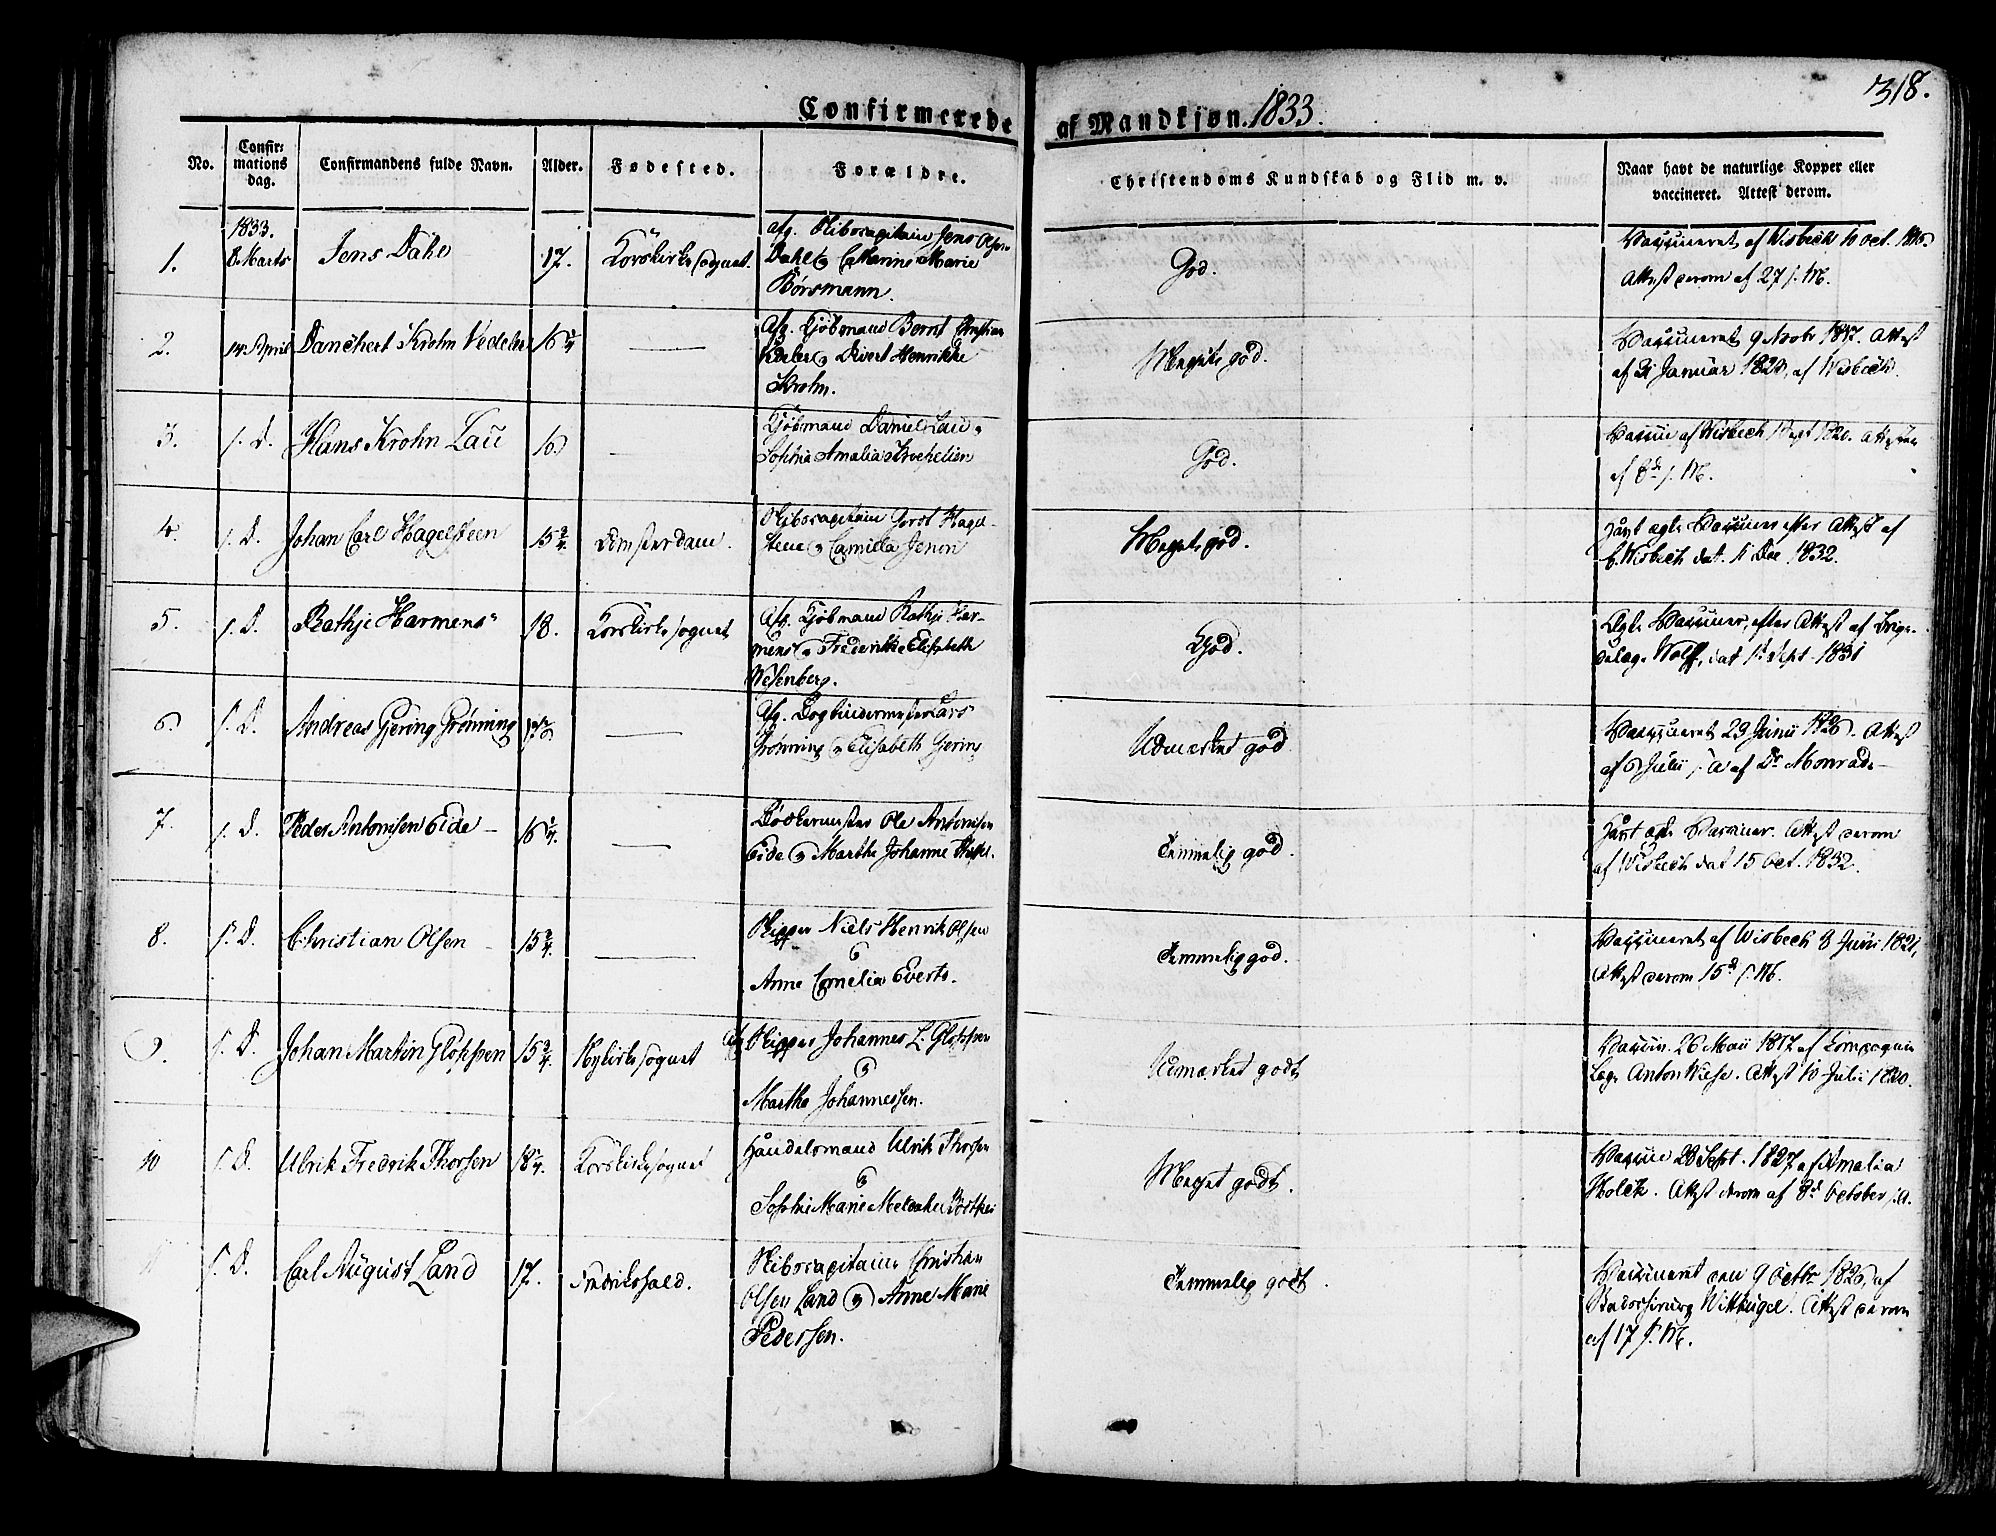 318.
Confirmerede af Mandkjøn. 1833.
No.
Confir-
mations
dag.
Confirmandens fulde Navn.
Alder.
Fødested.
Forældre.
Christendoms Kundskab og Flid m. v.
Naar havt de naturlige Kopper eller
vaccineret. Attest derom.
1833.
1. 8 Marts Jens Dahl 17. Korskirkesognet.
afg. Skibscapitain Jens
Dahl og Catharine Marie
Børsmann.
God.
Vaccineret af Wisbech 10 Oct.
Attest derom af 27 s. M.
2. 14 April Danckert Krohn Vedeler 16
Afg. Kjøbmand Bernt Christian
Vedeler og Divert Henrikke
Krohn.
Meget god.
Vaccineret 9 Novbr 1817. Attest
af 21 Januar 1820, af Wisbech.
3. s. D. Hans Krohn Lau 16
Kjøbmand Daniel Lau og
Sophia Amalia
God.
af Wisbech 1 Sept 1820. Attest
af 8d s. M.
4. s. D. Johan Carl Hagelsteen 15 3/4. Amsterdam.
Skibscapitain Gerst Hagel-
steen og Camilla
Meget god.
havt ægte Vacciner efter Attest af
Wisbech dat. 11 Dec 1832.
5. s. D. Rathje Harmens 18. Korskirkesognet
Afg. Kjøbmand Rathje Har-
mens og Frederikke Elisabeth
Wesenberg.
God.
Ægte Vacciner, efter Attest af Brigade-
læge Wolff, dat 1 Sept. 1831
6. s. D. Andreas Gjering Grønning 17
Afg. Bogbindermester Lars
Grønning og Elisabeth Gjering
Udmærket god
Vaccineret 29 Junii 1826. Attest
af 6 Julii s. A af Dr Monrad.
7. s. D. Peder Antonisen Eide 16 1/4.
Bødkermester Ole Antonisen
Eide og Marthe Johanne
Temmelig god.
havt ægte Vacciner. Attest derom
af Wisbech dat 15 Oct. 1832.
8. s. D. Christian Olsen 15 3/4.
Skipper Niels Henrik Olsen
og
Anne Cornelia Everts.
Temmelig god.
Vaccineret af Wisbech 3 Junii 1821,
Attest derom 15d s. M.
9. s. D. Johan Martin Gloppen 15 3/4. Nykirkesognet
afg Skipper Johannes L. Gloppen
og
Martha Johannessen.
Udmærket godt
Vaccin. 26 Maii 1817 af Compagnie
Læge Anton Wiese. Attest 10 Julii 1820.
10 s. D. Ulrik Fredrik Thorsen 18 1/4. Korskirkesognet
Handelsmand Ulrik Thorsen
og
Sophie Marie
Meget godt.
Vaccine 28 Sept. 1827 af Amalia
Holck. Attest derom af 8d October s. A.
s. D. Carl August Land 17. Fredrikshald.
Skibscapitain Christian
Olsen Land og Anne Marie
Pedersen.
Temmelig godt.
Vaccineret den 9 Octbr 1826, af
Wittugel. Attest derom
af 17 s. M.